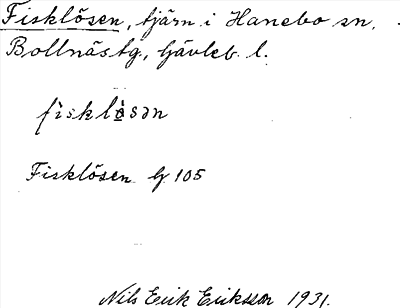 Fisklösen, tjärn i Hanebo sn.
Bollnästg, Gävleb. l.
fìsklö̀sən
Fisklösen G 105
Nils Erik Eriksson 1931.